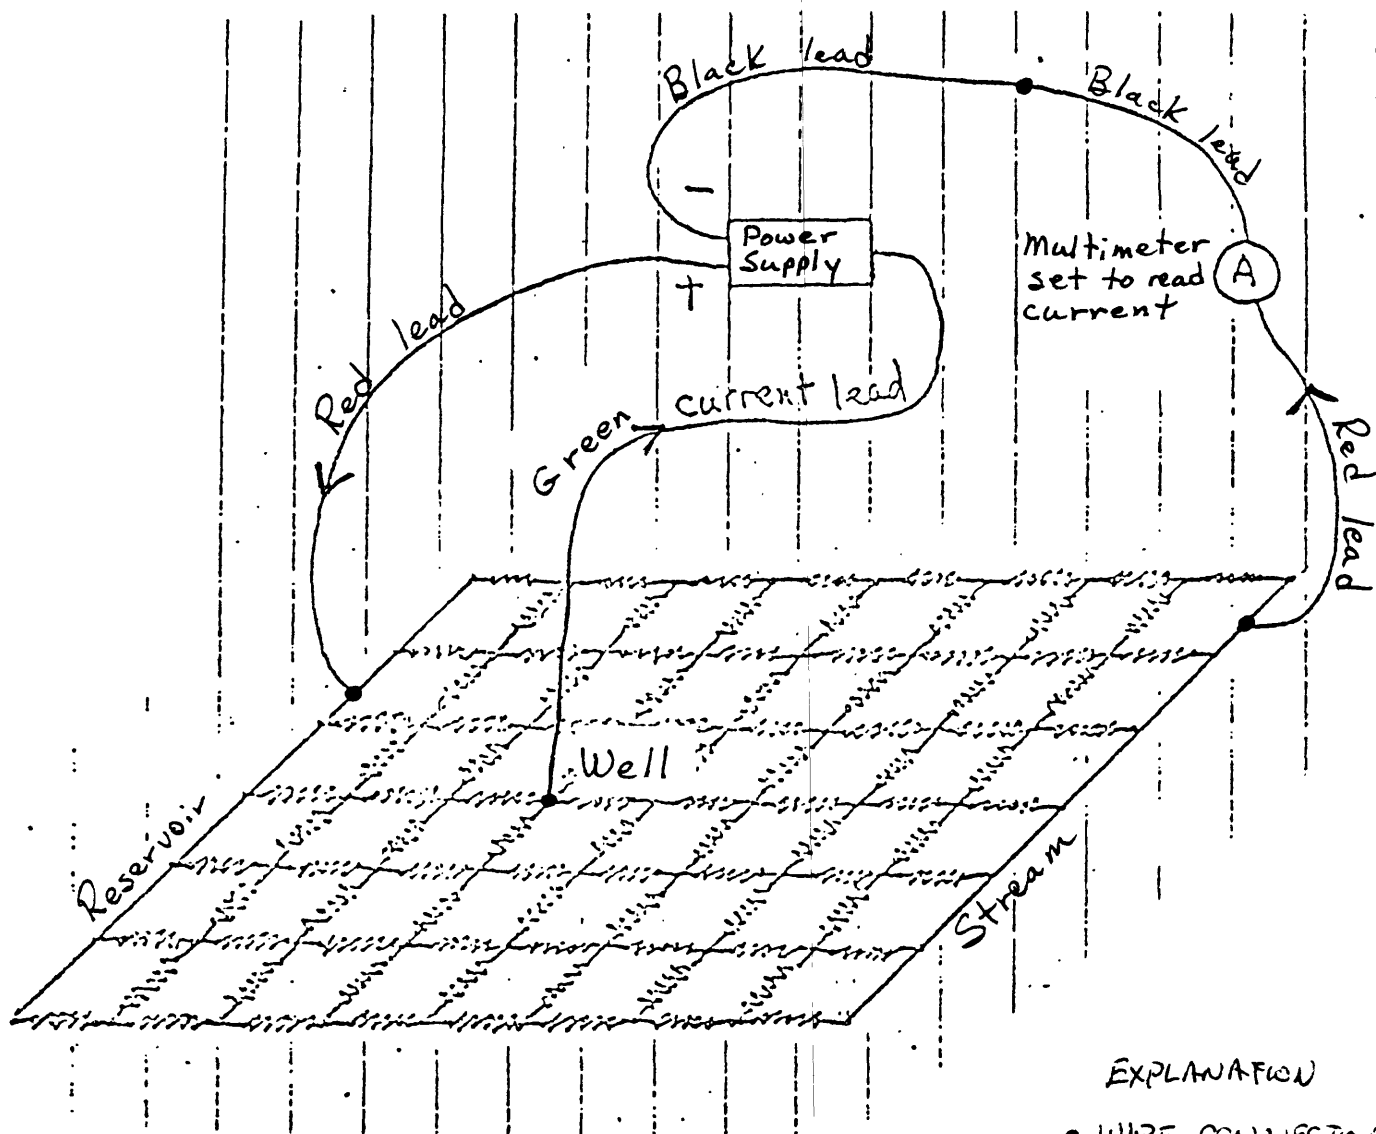 Black lead
Black lead
-
Power
Supply
+
Multimeter
set to read
current
A
Red lead
Green current lead
Red lead
Well
Reservoir
Stream
EXPLANATION